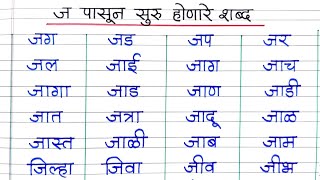 ज पासून सुरु होणारे शब्द
जग जड जप जर
जल जाई जाग जाच
जागा जाड जाण जाडी
जात जत्रा जादू जाळ
जास्त जाळी जाब जाम
जिल्हा जिवा जीव जीभ